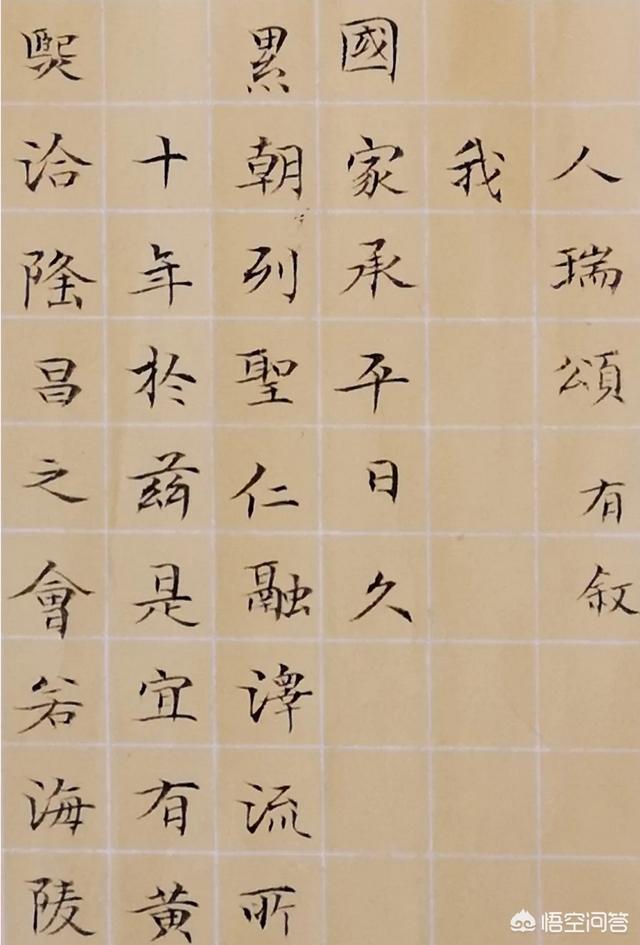 人瑞頌有叙
我
國家承平日久
累朝列聖仁融澤流所
十年於兹是宜有黄
熙洽隆昌之會若海陵
悟空问答